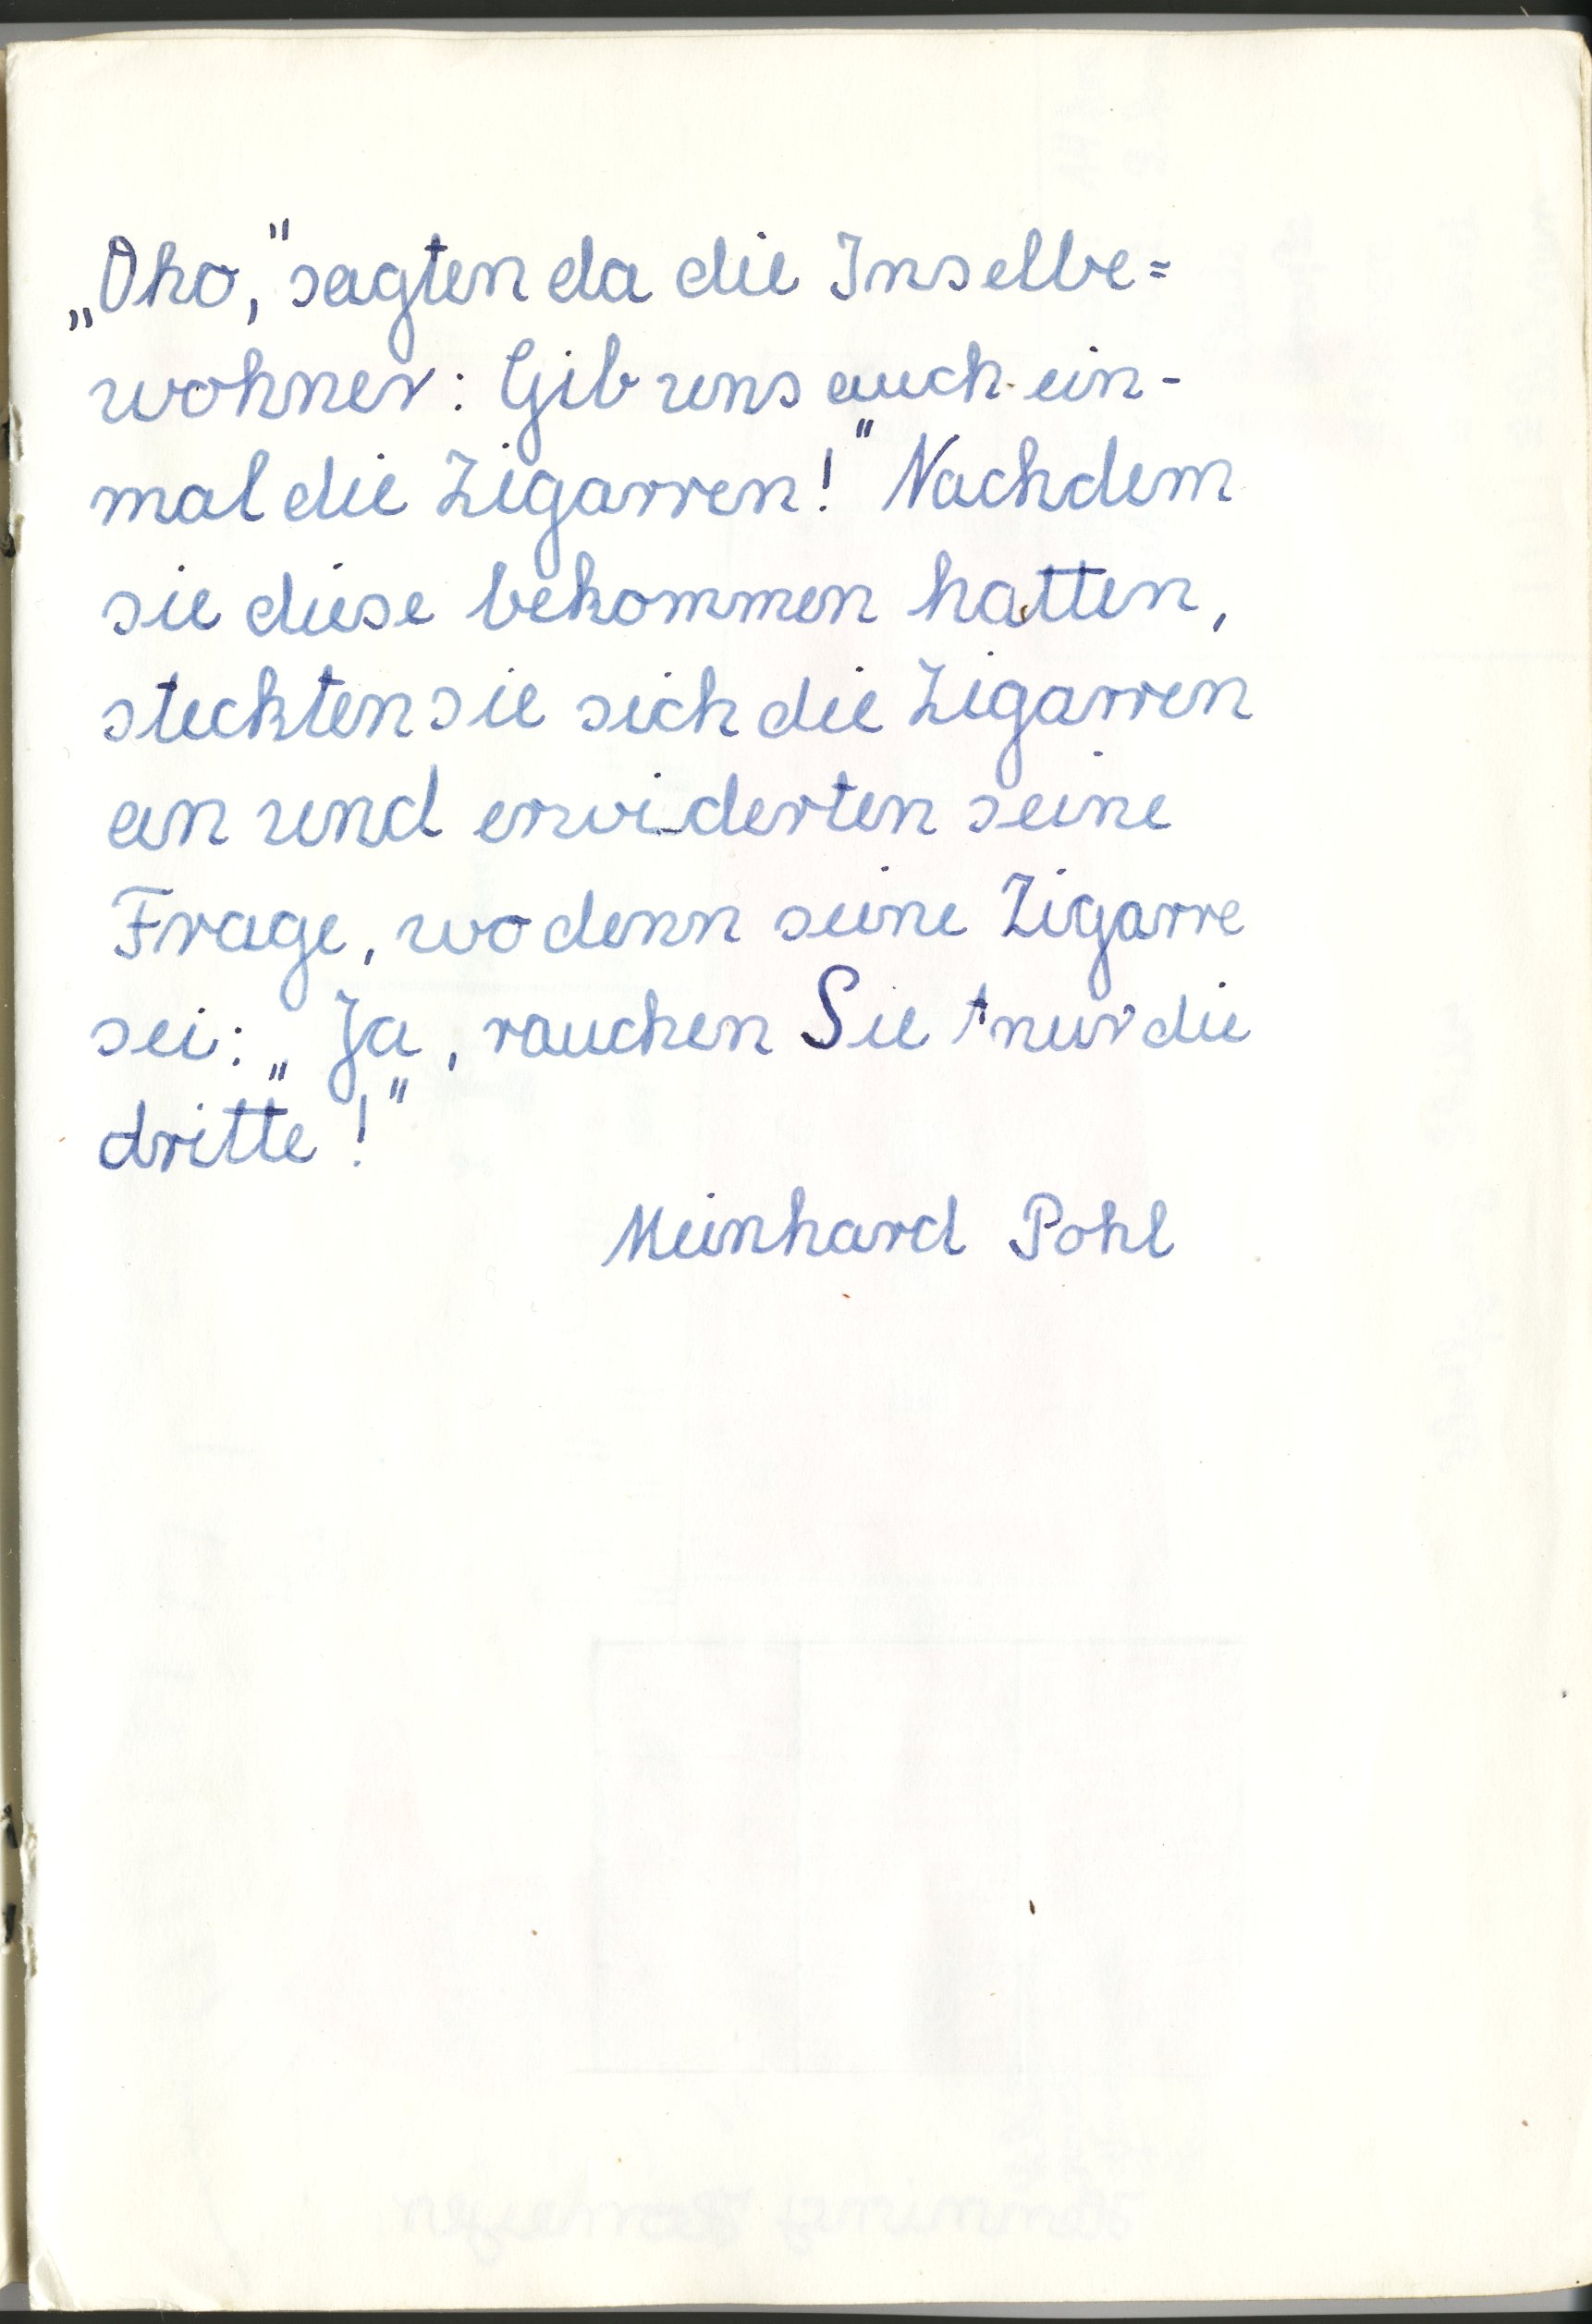 „Oho,“ sagten da die Inselbe=
wohner: Gib uns auch ein-
mal die Zigarren!“ Nachdem
sie diese bekommen hatten,
steckten sie sich die Zigarren
an und erwiderten seine
Frage, wo denn seine Zigarre
sei: „Ja, rauchen Sie nur die
dritte!“
Meinhard Pohl